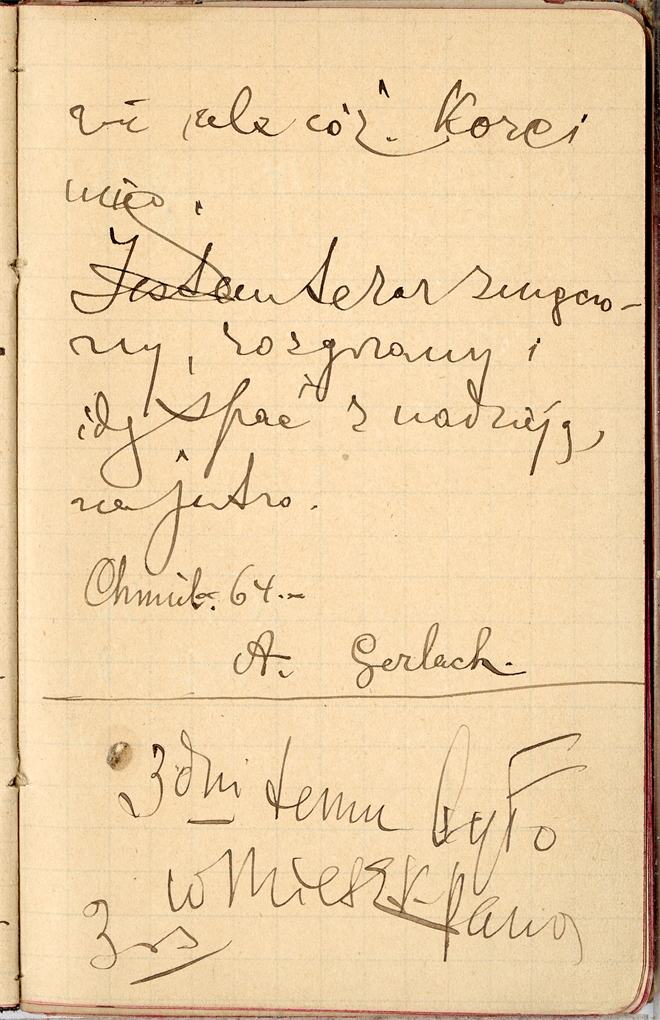 ale cóż. Korci
mię.
Jestem teraz zmęczo-
ny, rozgrzany i
idę spać z nadzieją,
na jutro.
Chmiel. 64.-
A. Gerlach.
3 dni temu było
w mieszk. pana